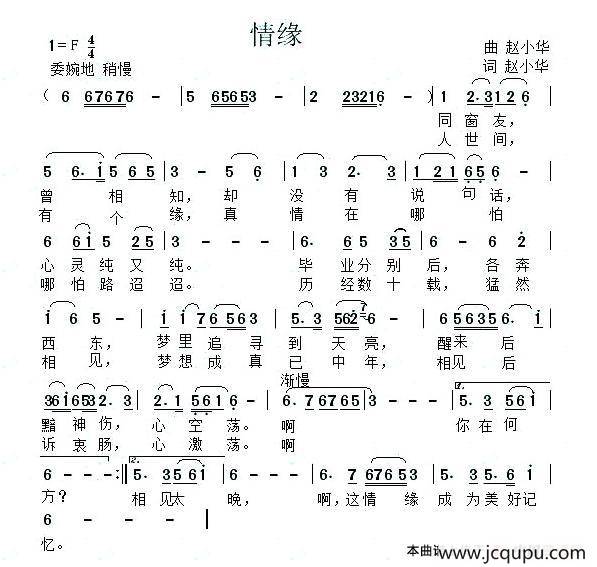 情缘
1=F 4/4
曲 赵小华
委婉地 稍慢
词 赵小华
( 6 67676 6 - | 5 65653 - | 2 23216 - ) | 1 2·312 6 |
同窗友，
人世间，
5 6·1 5 65 | 3 - 5 6 | 1 3 2· 3 | 1 21 65 6 |
曾相知，却没有说句话，
有个缘，真情在哪怕
6 61 5 25 | 3 - - - | 6· 65 35 | 6 - 6 2 |
心灵纯又纯。毕业分别后，各奔
哪怕路迢迢。历经数十载，猛然
1 65 - | 1 17 6 563 | 5· 3 562 6 - | 6 56356· |
西东，梦里追寻到天亮，醒来后
相见，梦想成真已中年，相见后
渐慢
3616532· 3 | 2· 1 561 - | 6· 76765 | 3 - - - | 5· 3 561 |
黯神伤，心空荡。啊你在何
诉衷肠，心激荡。啊
6 - - - :| 5· 3561 | 6 - - - | 6· 67653 | 5 3 2 3 |
方？相见太晚，啊，这情缘成为美好记
6 - - - |
忆。
本曲谱
www.jcqupu.com